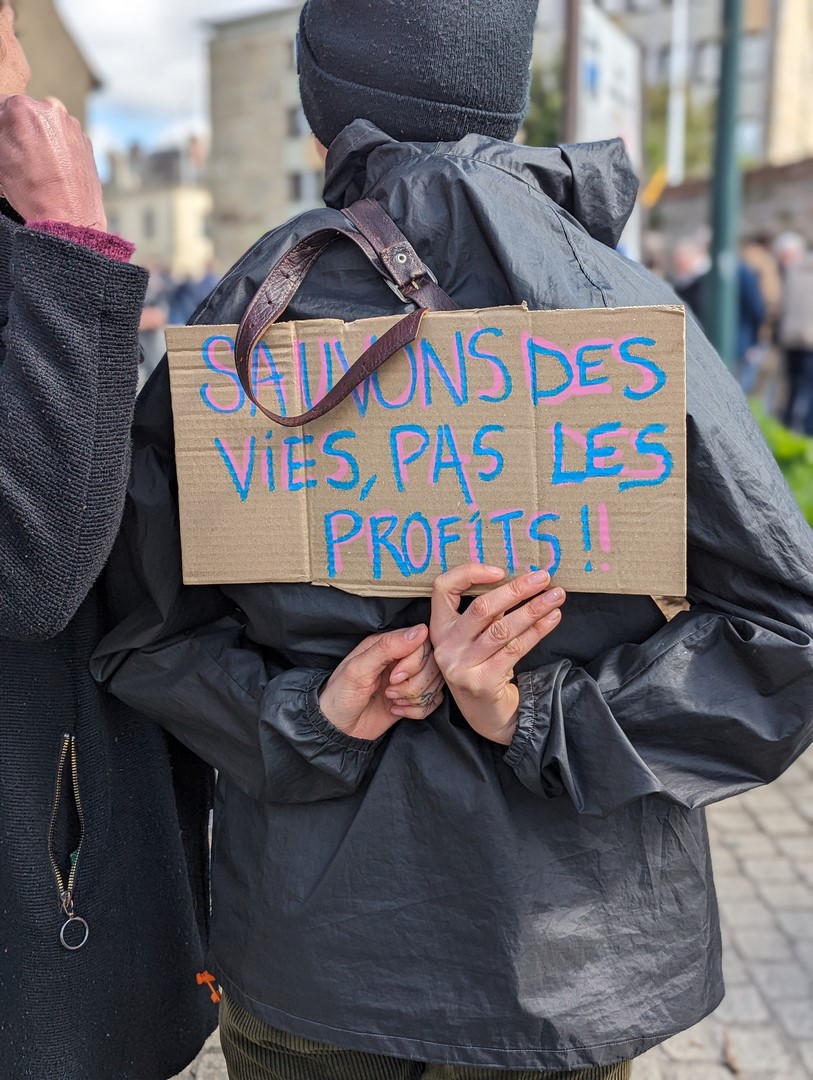 SAUVONS DES
ViES, PAS LES
PROFiTS !!